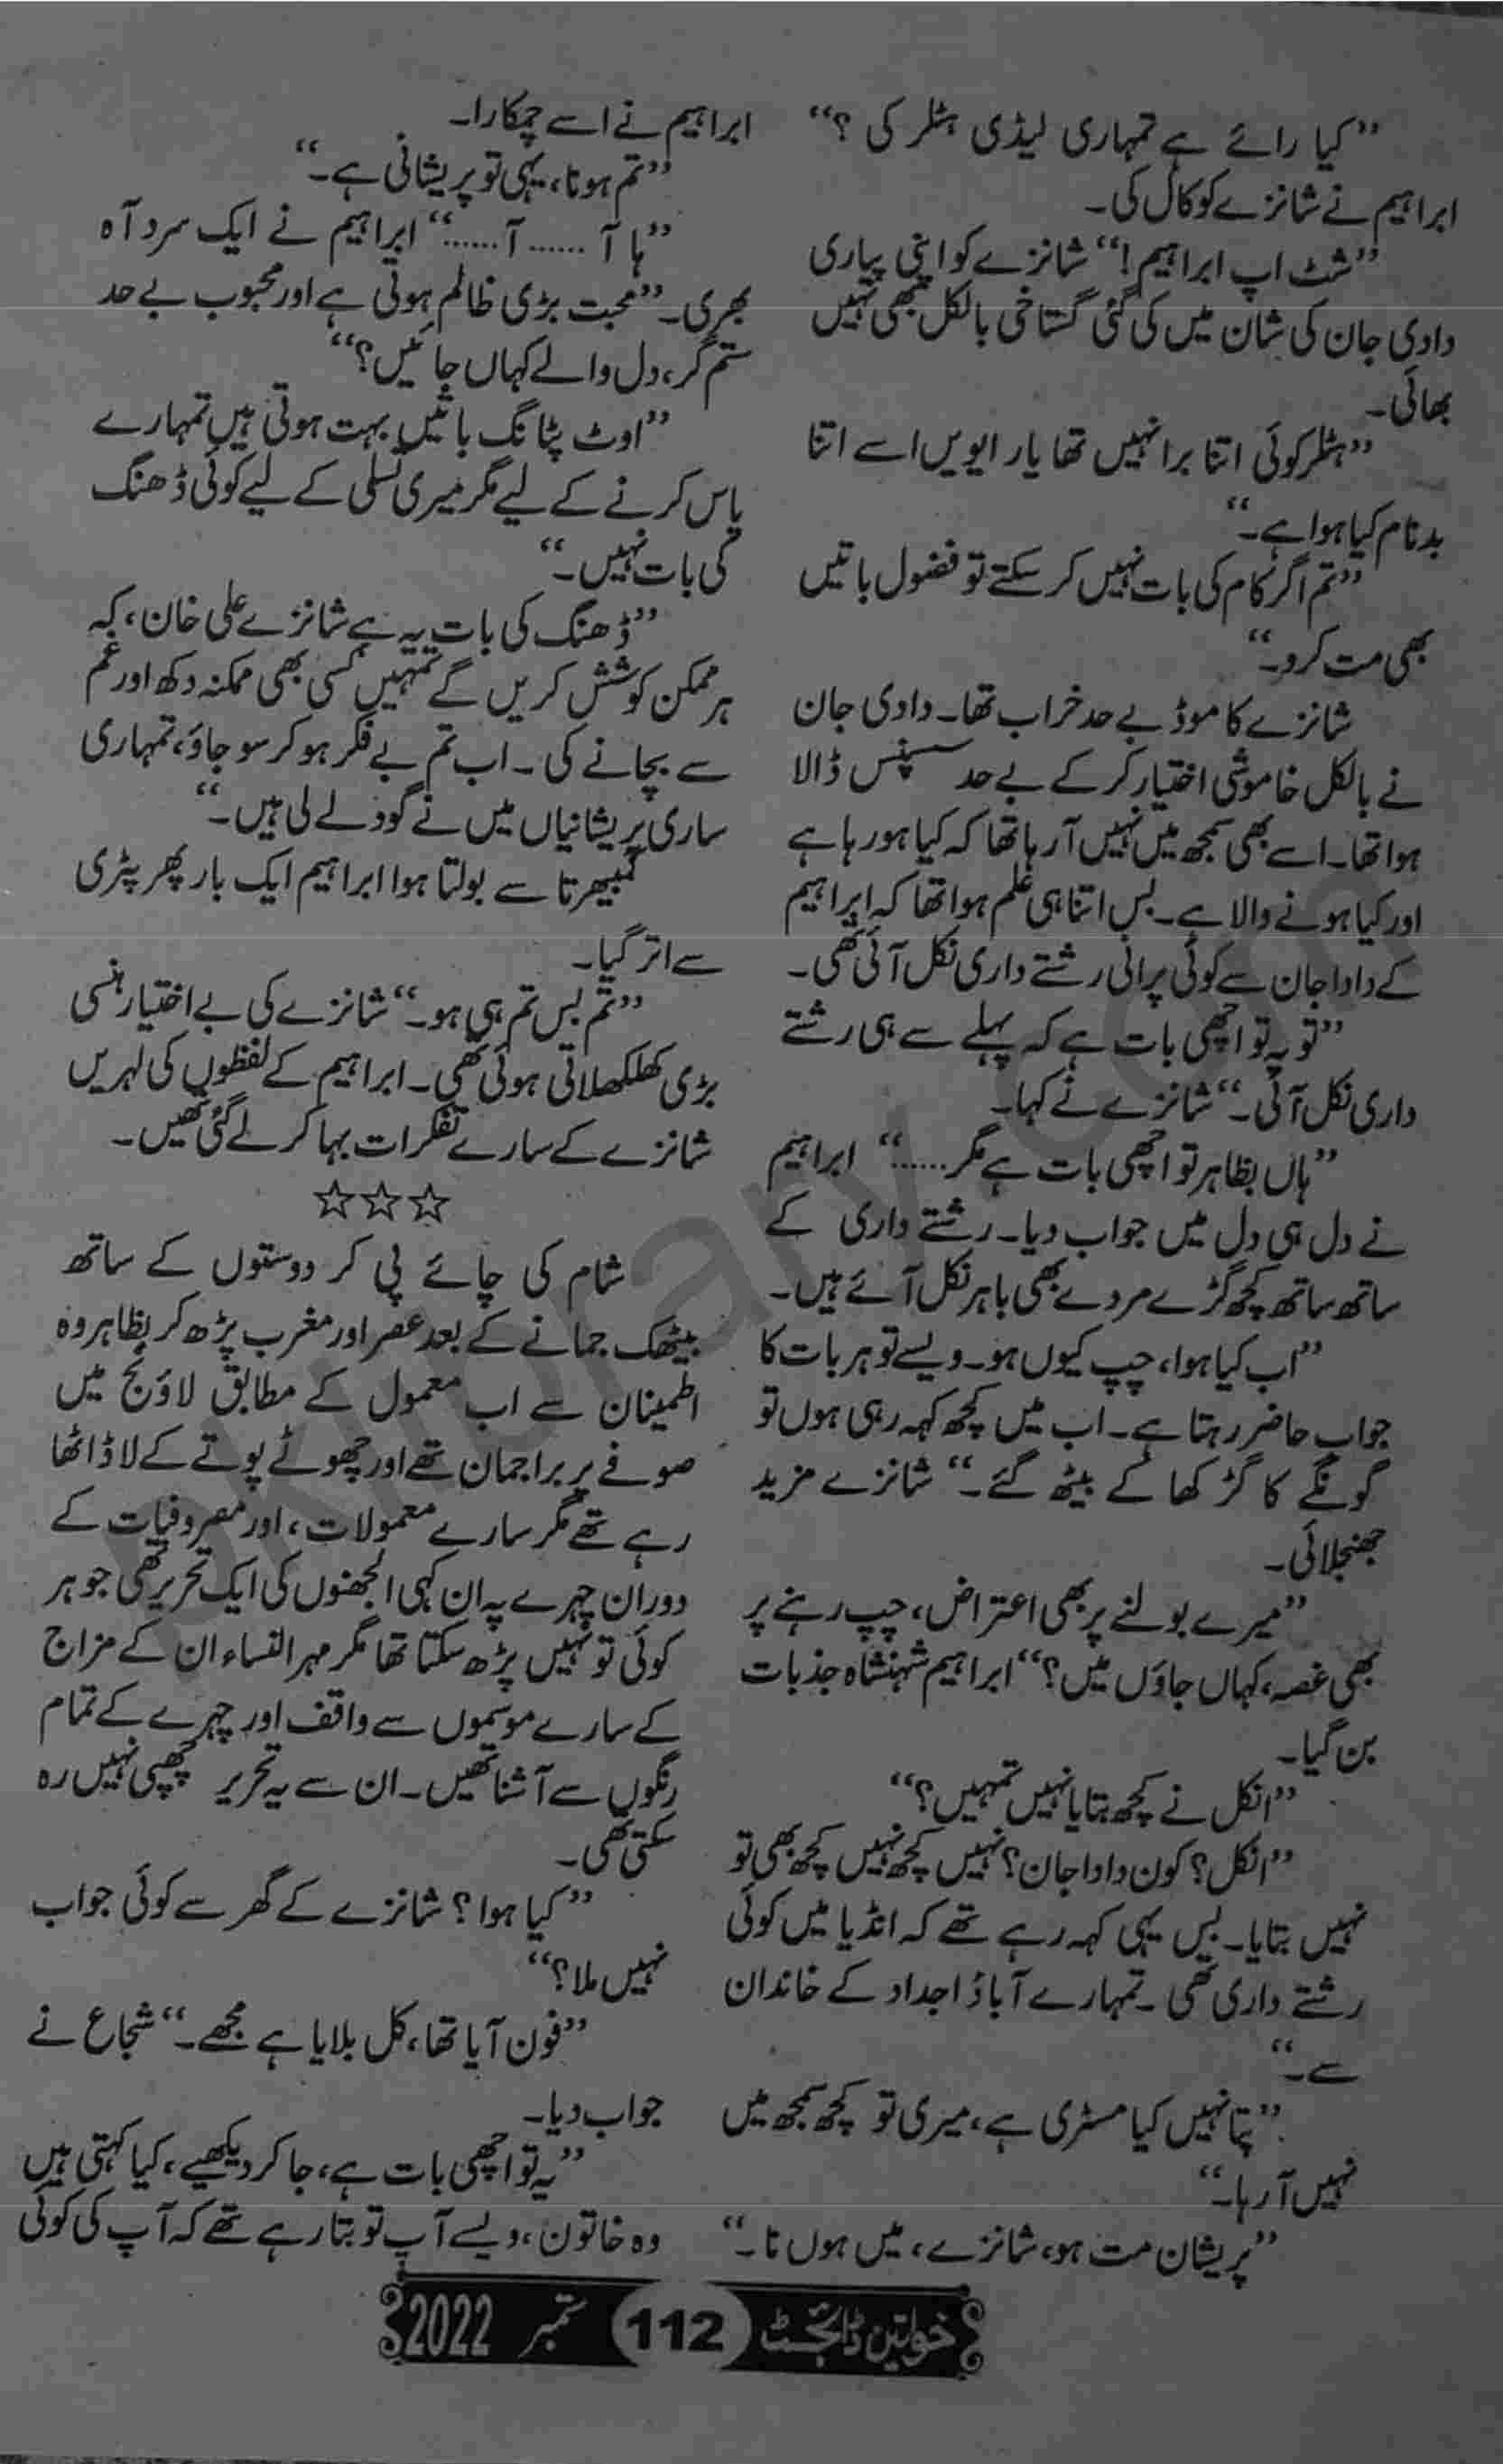 ”کیا رائے ہے تمہاری لیڈی ہٹلر کی؟“
ابراہیم نے شانزے کو کال کی۔
”شٹ اپ ابراہیم!“ شانزے کو اپنی پیاری
دادی جان کی شان میں کی گئی گستاخی بالکل بھی نہیں
بھائی۔
”ہٹلر کوئی اتنا برا نہیں تھا یار ایویں اسے اتنا
بدنام کیا ہوا ہے۔“
”تم اگر کام کی بات نہیں کر سکتے تو فضول باتیں
بھی مت کرو۔“
شانزے کا موڈ بے حد خراب تھا۔ دادی جان
نے بالکل خاموشی اختیار کر کے بے حد سسپنس ڈالا
ہوا تھا۔ اسے بھی سمجھ میں نہیں آ رہا تھا کہ کیا ہو رہا ہے
اور کیا ہونے والا ہے۔ بس اتنا ہی علم ہوا تھا کہ ابراہیم
کے دادا جان سے کوئی پرانی رشتے داری نکل آئی تھی۔
”تو یہ تو اچھی بات ہے کہ پہلے سے ہی رشتے
داری نکل آئی۔“ شانزے نے کہا۔
”ہاں بظاہر تو اچھی بات ہے مگر......“ ابراہیم
نے دل ہی دل میں جواب دیا۔ رشتے داری کے
ساتھ ساتھ کچھ گڑے مردے بھی باہر نکل آئے ہیں۔
”اب کیا ہوا، چپ کیوں ہو۔ ویسے تو ہر بات کا
جواب حاضر رہتا ہے۔ اب میں کچھ کہہ رہی ہوں تو
گونگے کا گڑ کھا کے بیٹھ گئے۔“ شانزے مزید
جھنجلائی۔
”میرے بولنے پر بھی اعتراض، چپ رہنے پر
بھی غصہ، کہاں جاؤں میں؟“ ابراہیم شہنشاہ جذبات
بن گیا۔
”انکل نے کچھ بتایا نہیں تمہیں؟“
”انکل؟ کون دادا جان؟ نہیں کچھ نہیں کچھ بھی تو
نہیں بتایا۔ بس یہی کہہ رہے تھے کہ انڈیا میں کوئی
رشتے داری تھی۔ تمہارے آباؤ اجداد کے خاندان
سے۔“
”پتا نہیں کیا مسٹری ہے، میری تو کچھ سمجھ میں
نہیں آ رہا۔“
”پریشان مت ہو، شانزے، میں ہوں نا۔“
ابراہیم نے اسے چمکارا۔
”تم ہو نا، یہی تو پریشانی ہے۔“
”ہا آ ...... آ......“ ابراہیم نے ایک سرد آہ
بھری۔ ”محبت بڑی ظالم ہوتی ہے اور محبوب بے حد
ستم گر، دل والے کہاں جائیں؟“
”اوٹ پٹانگ باتیں بہت ہوتی ہیں تمہارے
پاس کرنے کے لیے مگر میری تسلی کے لیے کوئی ڈھنگ
کی بات نہیں۔“
”ڈھنگ کی بات یہ ہے شانزے علی خان، کہ
ہر ممکن کوشش کریں گے تمہیں کسی بھی ممکنہ دکھ اور غم
سے بچانے کی۔ اب تم بے فکر ہو کر سو جاؤ، تمہاری
ساری پریشانیاں میں نے گود لے لی ہیں۔“
گمبھیرتا سے بولتا ہوا ابراہیم ایک بار پھر پٹری
سے اتر گیا۔
”تم بس تم ہی ہو۔“ شانزے کی بے اختیار ہنسی
بڑی کھلکھلاتی ہوئی تھی۔ ابراہیم کے لفظوں کی لہریں
شانزے کے سارے تفکرات بہا کر لے گئی تھیں۔
☆☆☆
شام کی چائے پی کر دوستوں کے ساتھ
بیٹھک جمانے کے بعد عصر اور مغرب پڑھ کر بظاہر وہ
اطمینان سے اب معمول کے مطابق لاؤنج میں
صوفے پر براجمان تھے اور چھوٹے پوتے کے لاڈ اٹھا
رہے تھے مگر سارے معمولات، اور مصروفیات کے
دوران چہرے پہ ان کہی الجھنوں کی ایک تحریر تھی جو ہر
کوئی تو نہیں پڑھ سکتا تھا مگر مہر النساء ان کے مزاج
کے سارے موسموں سے واقف اور چہرے کے تمام
رنگوں سے آشنا تھیں۔ ان سے یہ تحریر چھپی نہیں رہ
سکتی تھی۔
”کیا ہوا؟ شانزے کے گھر سے کوئی جواب
نہیں ملا؟“
”فون آیا تھا، کل بلایا ہے مجھے۔“ شجاع نے
جواب دیا۔
”یہ تو اچھی بات ہے، جا کر دیکھیے، کیا کہتی ہیں
وہ خاتون، ویسے آپ تو بتا رہے تھے کہ آپ کی کوئی
خواتین ڈائجسٹ 112 ستمبر 2022
pklibrary.com